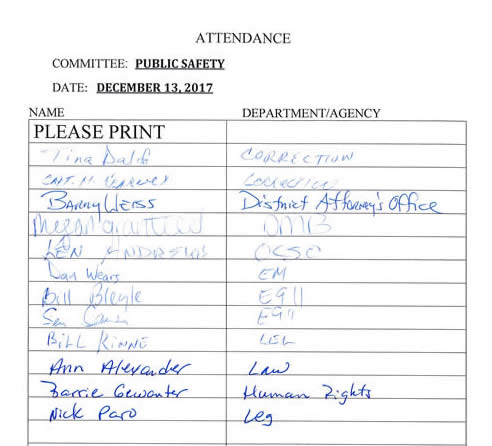 ATTENDANCE
COMMITTEE: PUBLIC SAFETY
DATE: DECEMBER 13, 2017
NAME DEPARTMENT/AGENCY
PLEASE PRINT
Tina CORRECTION
CORRECTION
BARRY WEISS District Attorney's Office
OMB
LEN ANDREWS OCSO
Dan Wears EM
Bill Bleyle E911
E911
BILL KINNE LEG
Ann Alexander Law
Barrie Gewanter Human Rights
Nick Paro Leg